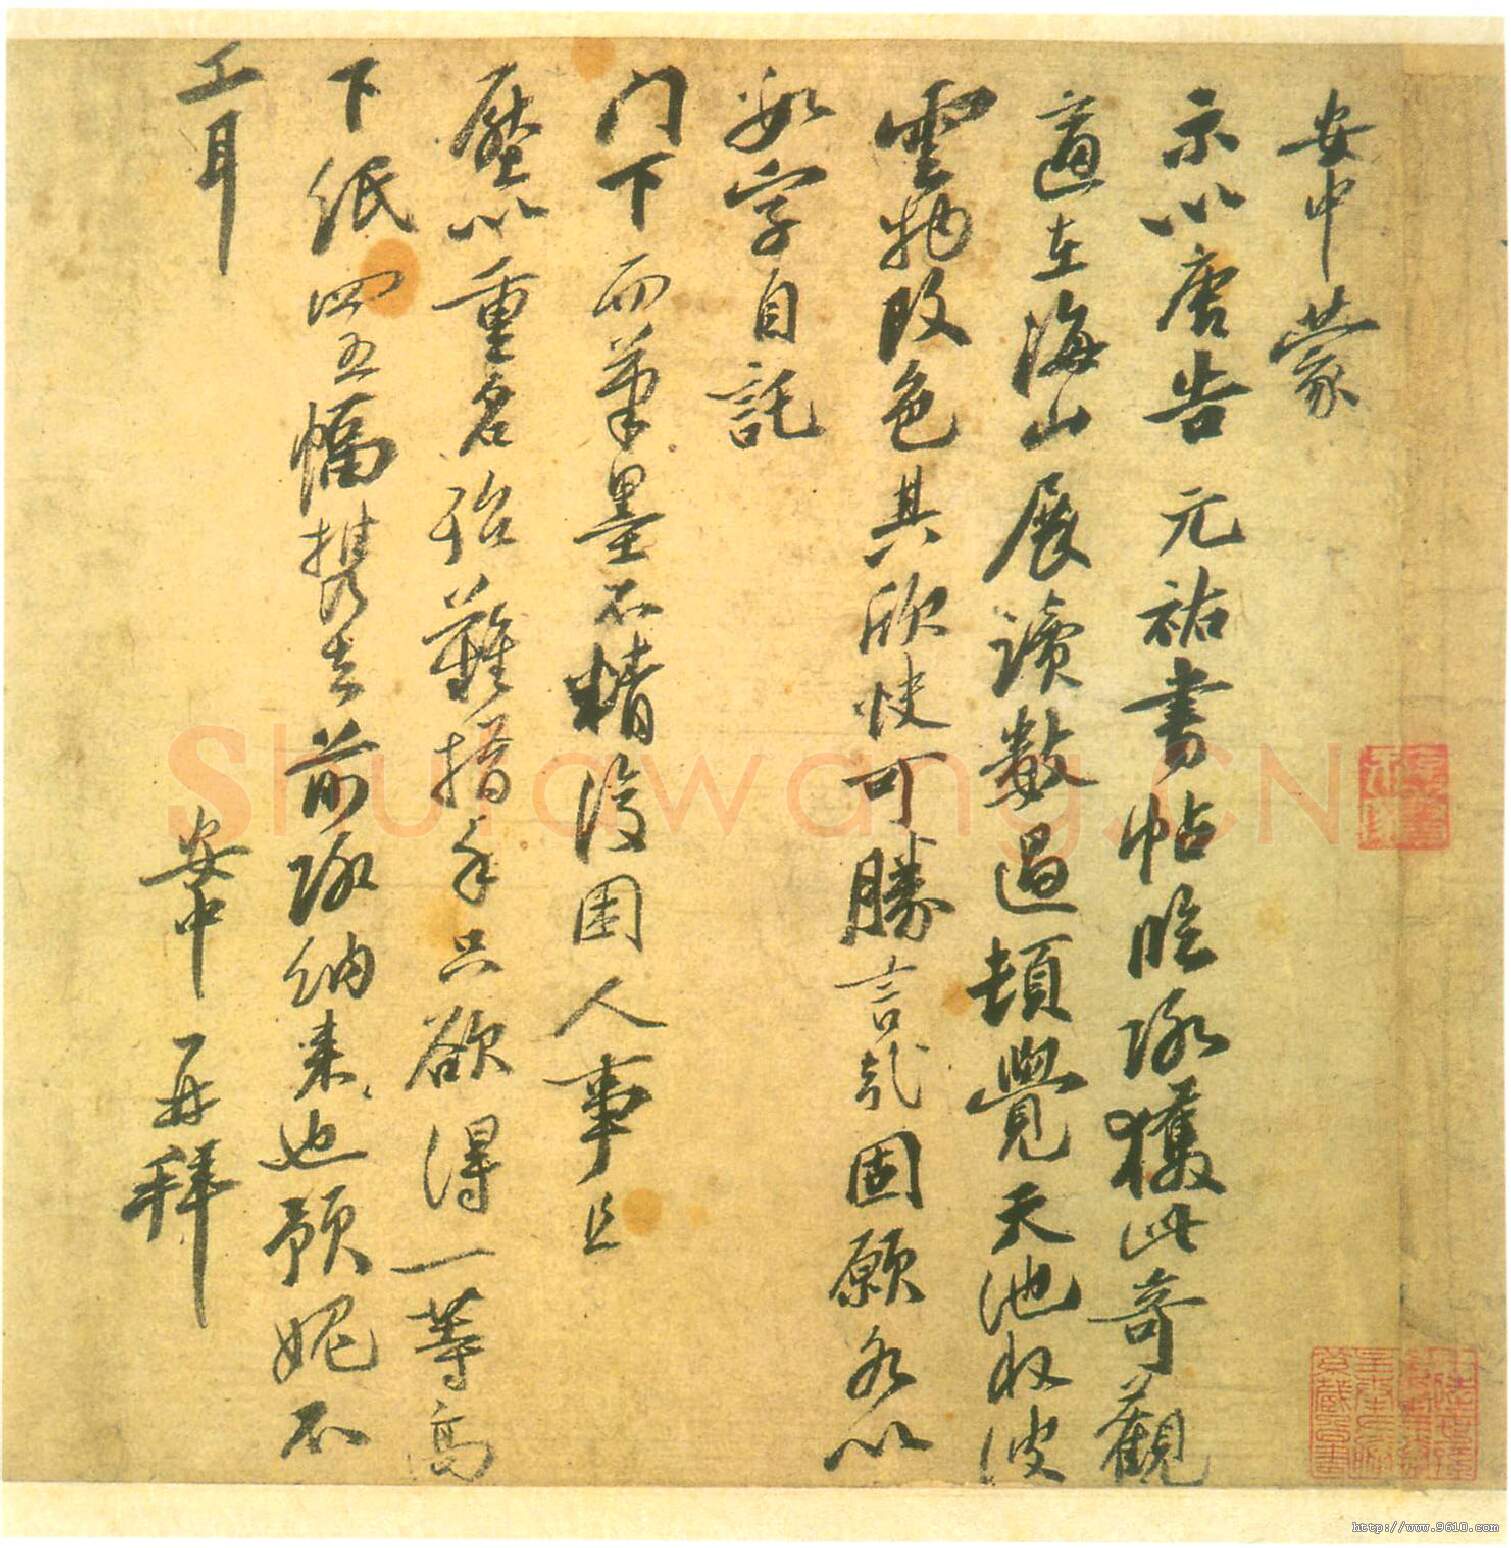 安中蒙
示以唐告元祐書帖獲此奇觀
適在海山展讀數過頓覺天池收波
雲物改色其欣快可勝言哉固願名以
數字自託
门下而筆墨不精復困人事且
壓以重名殆難措手只欲得一等高
下紙四五幅携去前納来也預媿不
工耳 安中再拜
Shufawang.CN
http://www.9610.com